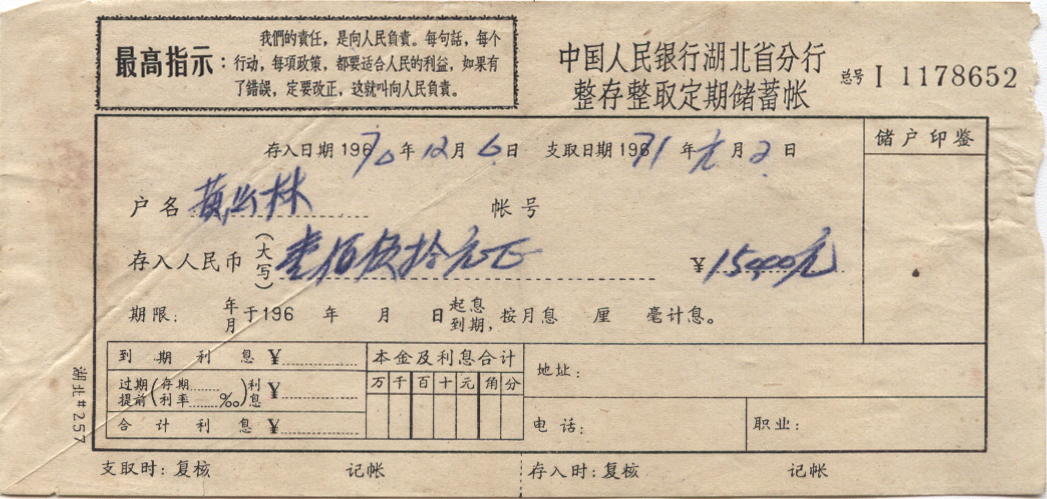 最高指示:
我們的責任，是向人民負責。每句話，每个
行动，每項政策，都要适合人民的利益，如果有
了錯誤，定要改正，这就叫向人民負責。
中国人民银行湖北省分行
整存整取定期储蓄帐
总号 I 1178652
存入日期 196 70 年 12 月 6 日 支取日期 196 71 年 元 月 2 日
储户印鉴
户名 黄 林 帐号
存入人民币(大写) 壹佰伍拾元正 ¥ 150.00元
期限: 年月 于196 年 月 日 起息到期, 按月息 厘 毫计息。
到期利息 ¥
过期提前(存期......利率......‰)利息 ¥
合计利息 ¥
本金及利息合计
万 千 百 十 元 角 分
地址:
电话:
职业:
湖北#257
支取时: 复核 记帐 存入时: 复核 记帐